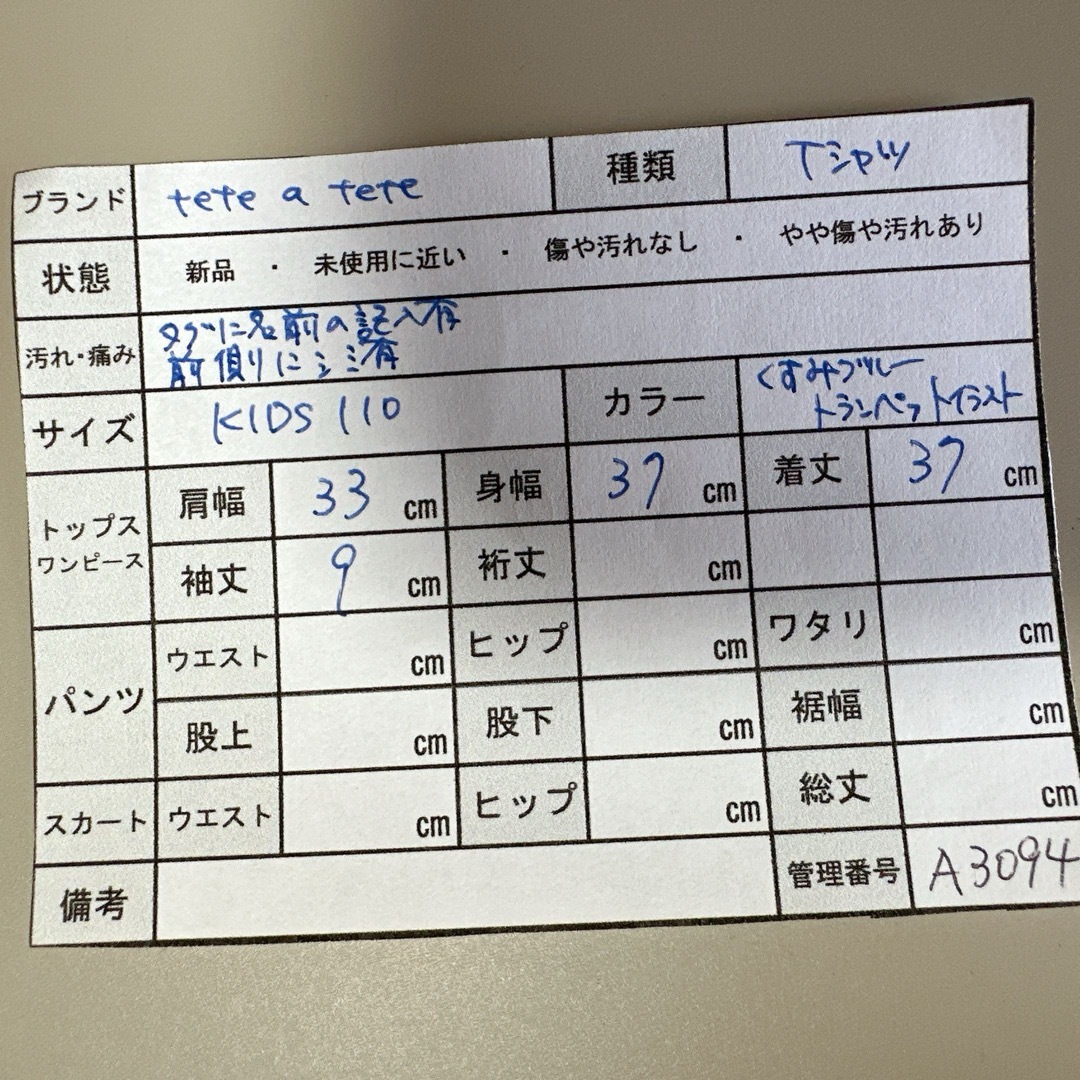 ブランド tete a tete 種類 Tシャツ
状態 新品 ・ 未使用に近い ・ 傷や汚れなし ・ やや傷や汚れあり
汚れ・痛み タグに名前の記入有
前側りにシミ有
サイズ KIDS 110 カラー くすみブルー
トランペットイラスト
トップス
ワンピース
肩幅 33 cm 身幅 37 cm 着丈 37 cm
袖丈 9 cm 裄丈 cm
パンツ
ウエスト cm ヒップ cm ワタリ cm
股上 cm 股下 cm 裾幅 cm
スカート ウエスト cm ヒップ cm 総丈 cm
備考 管理番号 A3094